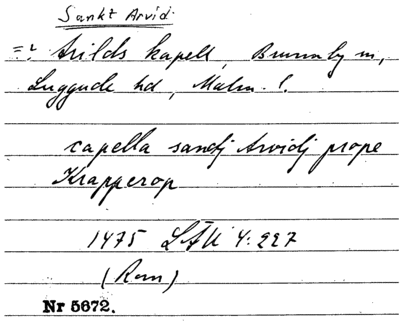 Sankt Arvid
=? Arilds kapell, Brunnby sn,
Luggude hd, Malm. l.
capella sandj Arvidj prope
Krapperop
1475 LÄU 4:227
(Rom)
Nr 5672.